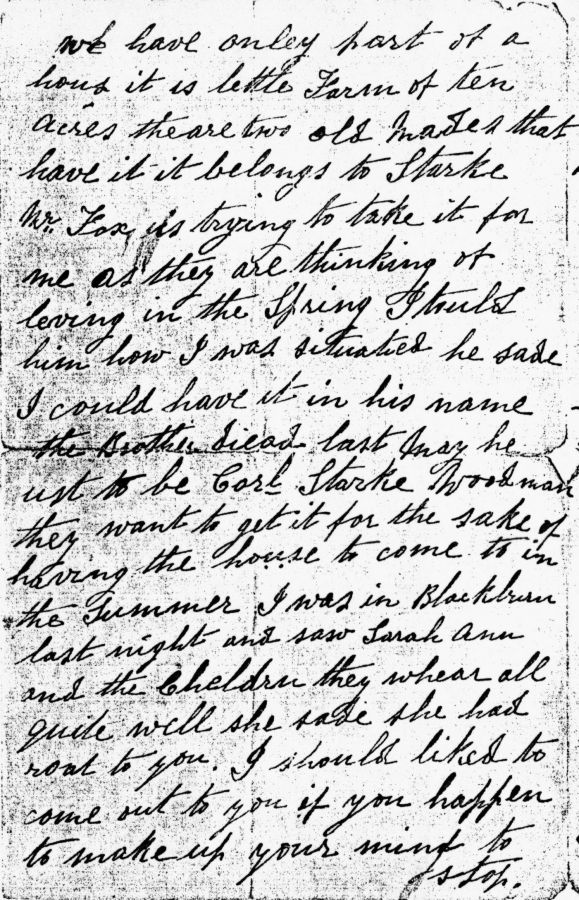 we have onley part of a
hous it is lettle Farm of ten
Acres theare two old Mades that
have it it belongs to Starke
Mr. Fox is trying to take it for
me as they are thinking of
leving in the Spring I tould
him how I was situated he sade
I could have it in his name
the Brother diead last May he
ust to be Carl Starke Woodman
they want to get it for the sake of
having the house to come to in
the Summer I was in Blackburn
last night and saw Sarah Ann
and the Cheldrn they whear all
quite well she sade she had
roat to you. I should liked to
come out to you if you happen
to make up your mind to
stop.